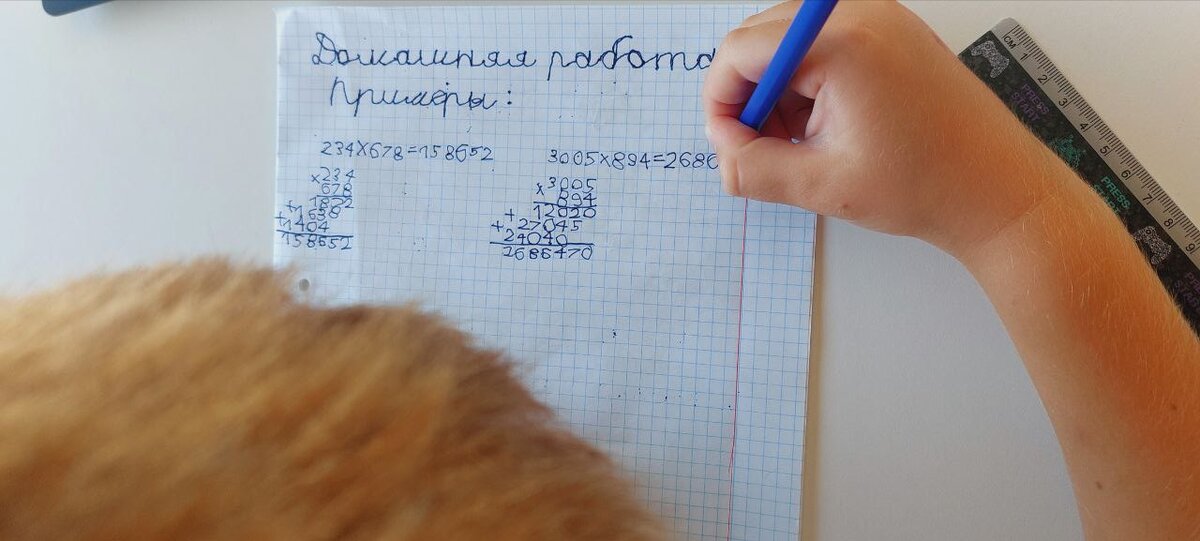 Домашняя работа
Примеры:
234×678=158652
×234
678
+1872
+1638
1404
158652
3005×894=2686
×3005
894
+12020
+27045
24040
2686470
СМ 1 2 3 4 5 6 7 8 9
PRESS START
PRESS START